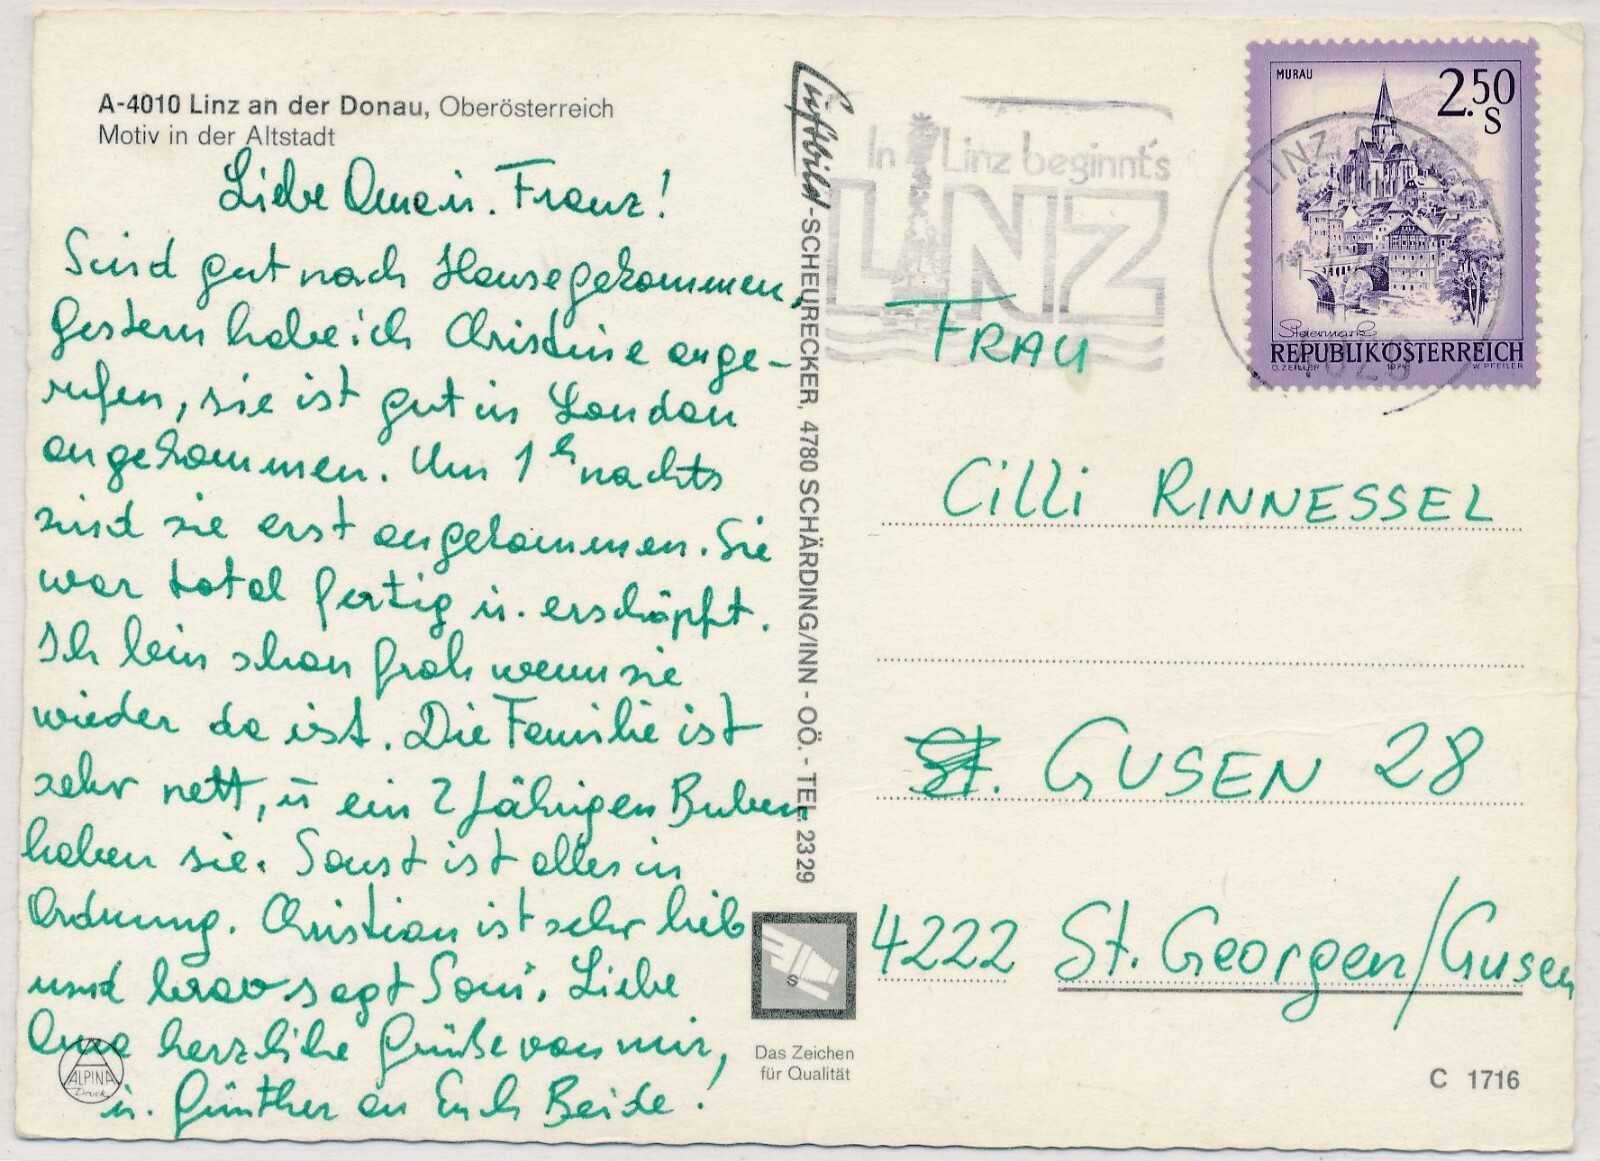 A-4010 Linz an der Donau, Oberösterreich
Motiv in der Altstadt
Liebe Oma u. Franz!
Sind gut nach Hause gekommen,
gestern habe ich Christine ange-
rufen, sie ist gut in London
angekommen. Um 1 h nachts
sind sie erst angekommen. Sie
war total fertig u. erschöpft.
Ich bin schon froh wenn sie
wieder da ist. Die Familie ist
sehr nett, u ein 2 jährigen Buben
haben sie. Sonst ist alles in
Ordnung. Christian ist sehr lieb
und brav sagt Soni. Liebe
Oma herzliche Grüße von mir,
u. Günther an Euch Beide!
ALPINA
Druck
Luftbild-SCHEURECKER, 4780 SCHÄRDING/INN - OÖ. - TEL. 2329
S
Das Zeichen
für Qualität
In Linz beginnt's
LINZ
MURAU
2.50
S
Steiermark
REPUBLIK ÖSTERREICH
O. ZEILLER 1974 W. PFEILER
LINZ
4020
FRAU
Cilli RINNESSEL
St. GUSEN 28
4222 St. Georgen/Gusen
C 1716